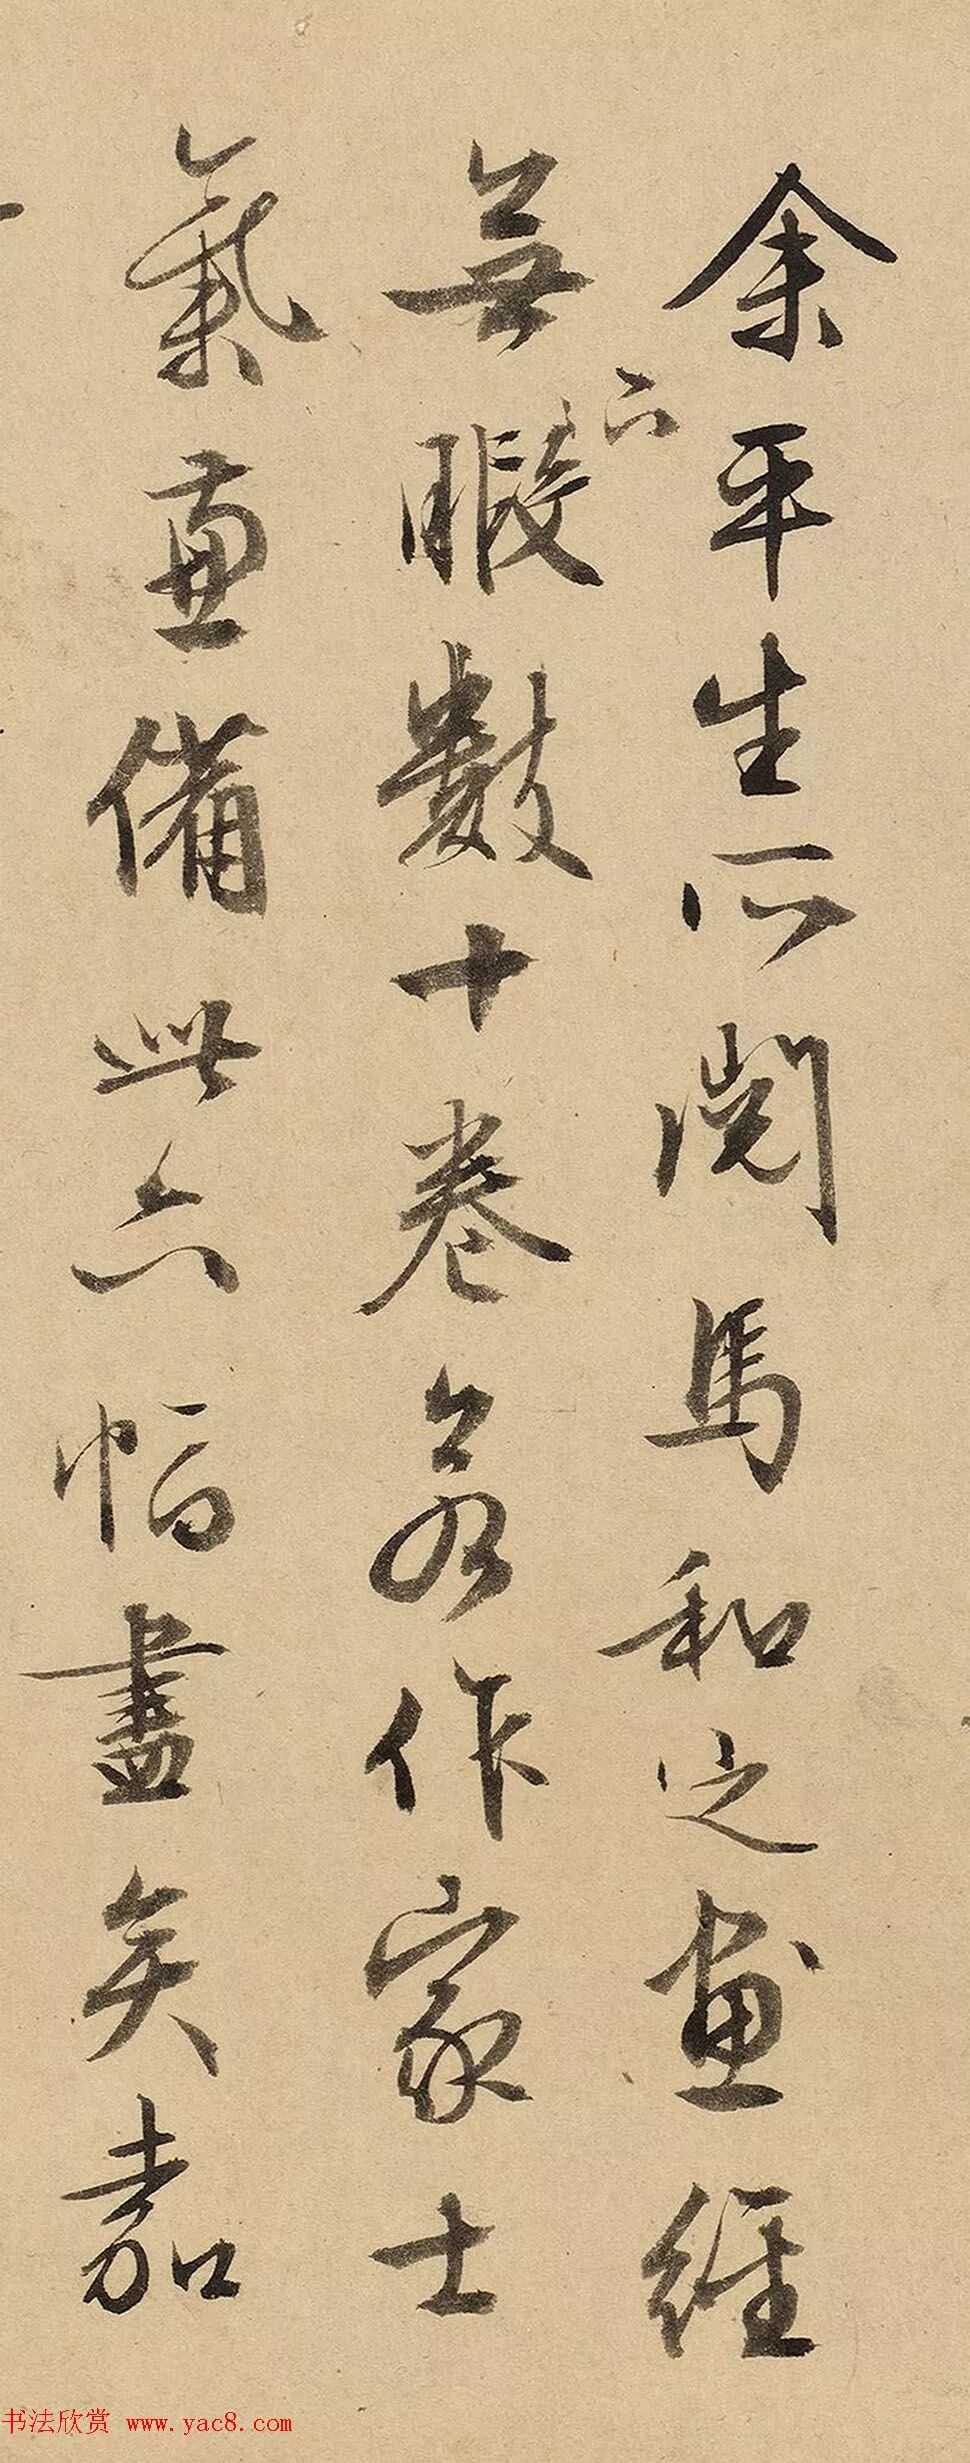 余平生所閱馬和之畫維
無暇數十卷若作家士
氣兼備此六幅盡矣嘉
书法欣赏 www.yac8.com